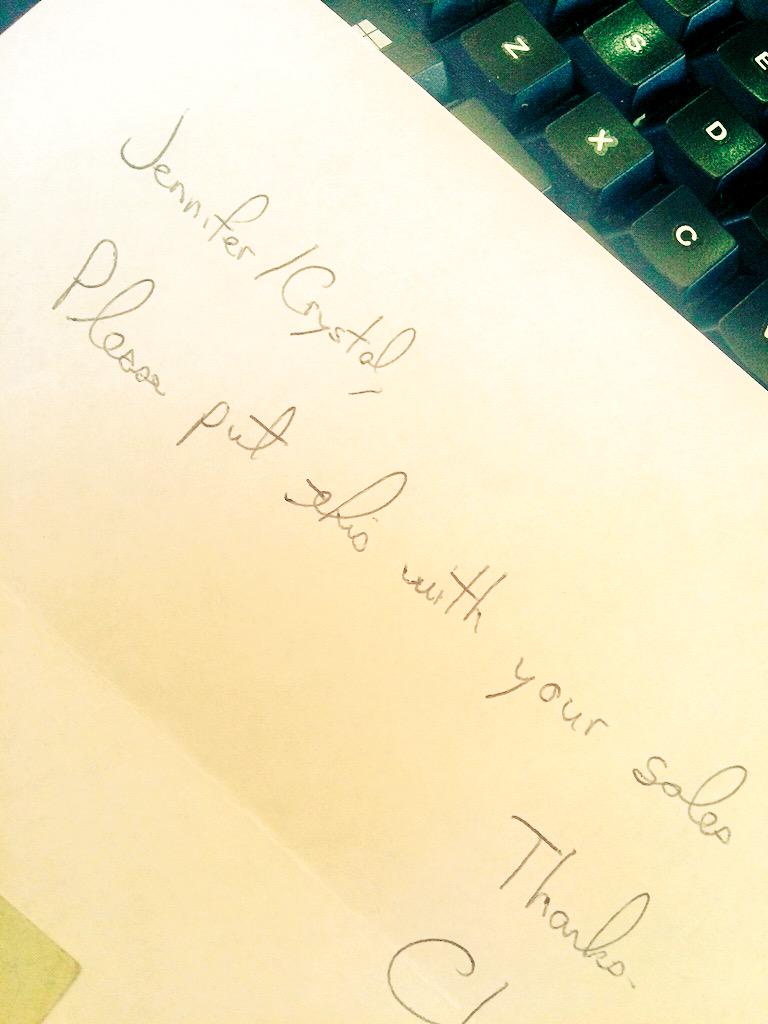 Z S E
X D
C
Jennifer/Crystal,
Please put this with your sales
Thanks.